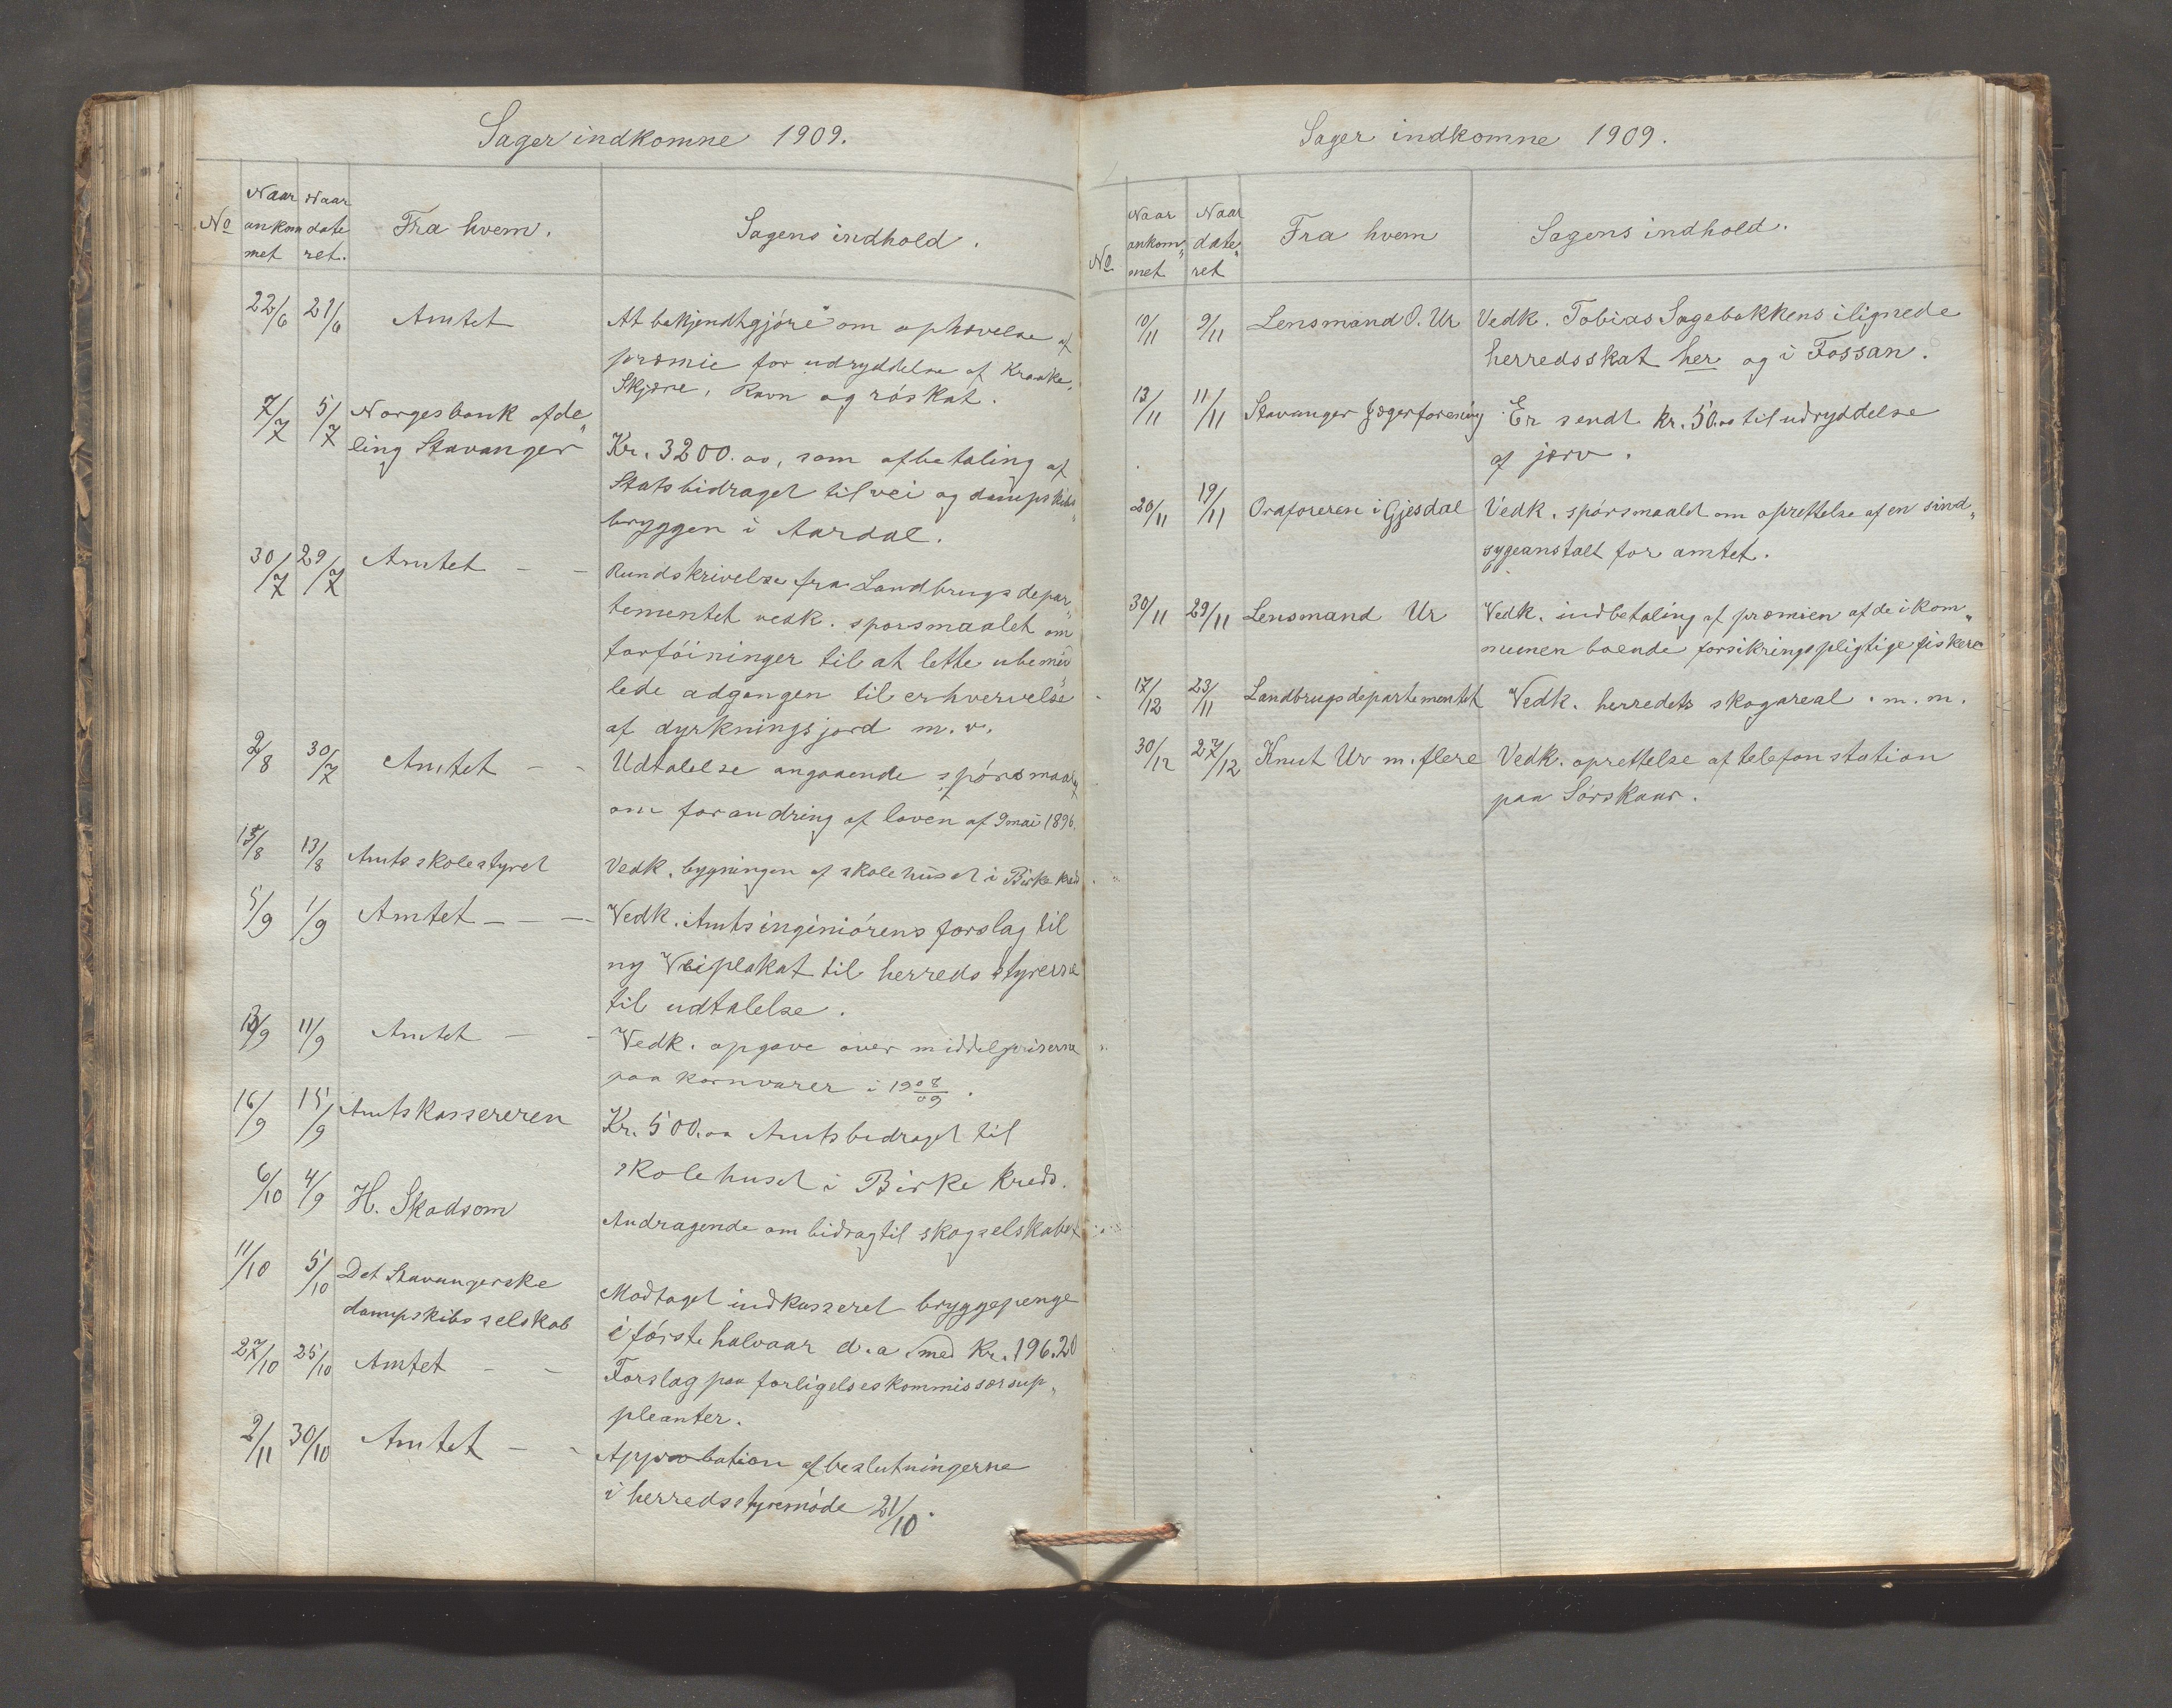 Sager indkomne 1909.
No
Naar ankommet
Naar dateret.
Fra hvem.
Sagens indhold.
22/6 21/6 Amtet At bekjendtgjöre om ophævelse af
præmie for udryddelse af Kraake,
Skjære, Ravn og röskat.
7/7 5/7 Norgesbank afde„
ling Stavanger
Kr. 3200.00, som afbetaling af
Statsbidraget til vei og dampskibs„
bryggen i Aardal.
30/7 29/7 Amtet — — Rundskrivelse fra Landbrugsdepar„
tementet vedk. sporsmaalet om
forföininger til at lette ubemid„
lede adgangen til erhvervelse
af dyrkningsjord m.v.
2/8 30/7 Amtet — — Udtalelse angaaende spörsmaal
om forandring af loven af 9 mai 1896.
15/8 13/8 Amtsskolestyret Vedk. bygningen af skolehuset i Birke kred
5/9 1/9 Amtet — — — Vedk. Amtsingeniörens forslag til
ny Veiplakat til herredsstyrerne
til udtalelse.
11/9 Amtet — - Vedk. opgave over middelpriserne
paa kornvarer i 1908/09.
16/9 15/9 Amtskassereren Kr. 500.00 Amtsbidraget til
skolehuset i Birke Kreds.
6/10 4/9 H. Skadsom Andragende om bidrag til skogselskabet
11/10 5/10 Det Stavangerske
dampskibsselskab
Modtaget indkasseret bryggepenge
i förste halvaar d.a. med Kr. 196.20
27/10 25/10 Amtet — — Forslag paa forligelseskommissærsup„
pleanter.
2/11 30/10 Amtet — - Approbation af beslutningerne
i herredsstyremöde 21/10.
Sager indkomne 1909.
No
Naar ankom„met
Naar date„ret
Fra hvem
Sagens indhold.
10/11 9/11 Lensmand O. Ur Vedk. Tobias Sagebakkens ilignede
herredsskat her og i Fossan.
13/11 11/11 Stavanger Jægerforening Er sendt kr. 50.00 til udryddelse
af jærv.
20/11 19/11 Ordføreren i Gjesdal Vedk. spörsmaalet om oprettelse af en sind„
sygeanstalt for amtet.
30/11 29/11 Lensmand Ur Vedk. indbetaling af præmien af de i kom„
munen boende forsikringspligtige fiskere
17/12 23/11 Landbrugsdepartementet Vedk. herredets skogareal. m.m.
30/12 27/12 Knut Ur m. flere Vedk. oprettelse af telefonstation
paa Sörskaar.